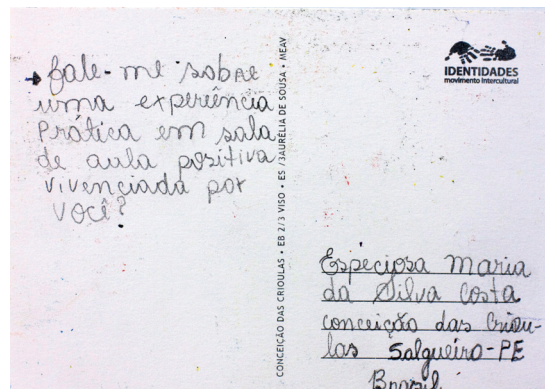 → fale-me sobre
uma experiência
Prática em sala
de aula positiva
vivenciada por
você?
CONCEIÇÃO DAS CRIOULAS • EB 2/3 VISO • ES /3AURÉLIA DE SOUSA • MEAV
IDENTIDADES
movimento intercultural
Especiosa Maria
da Silva Costa
conceição das Criou-
las Salgueiro-PE
Brasil